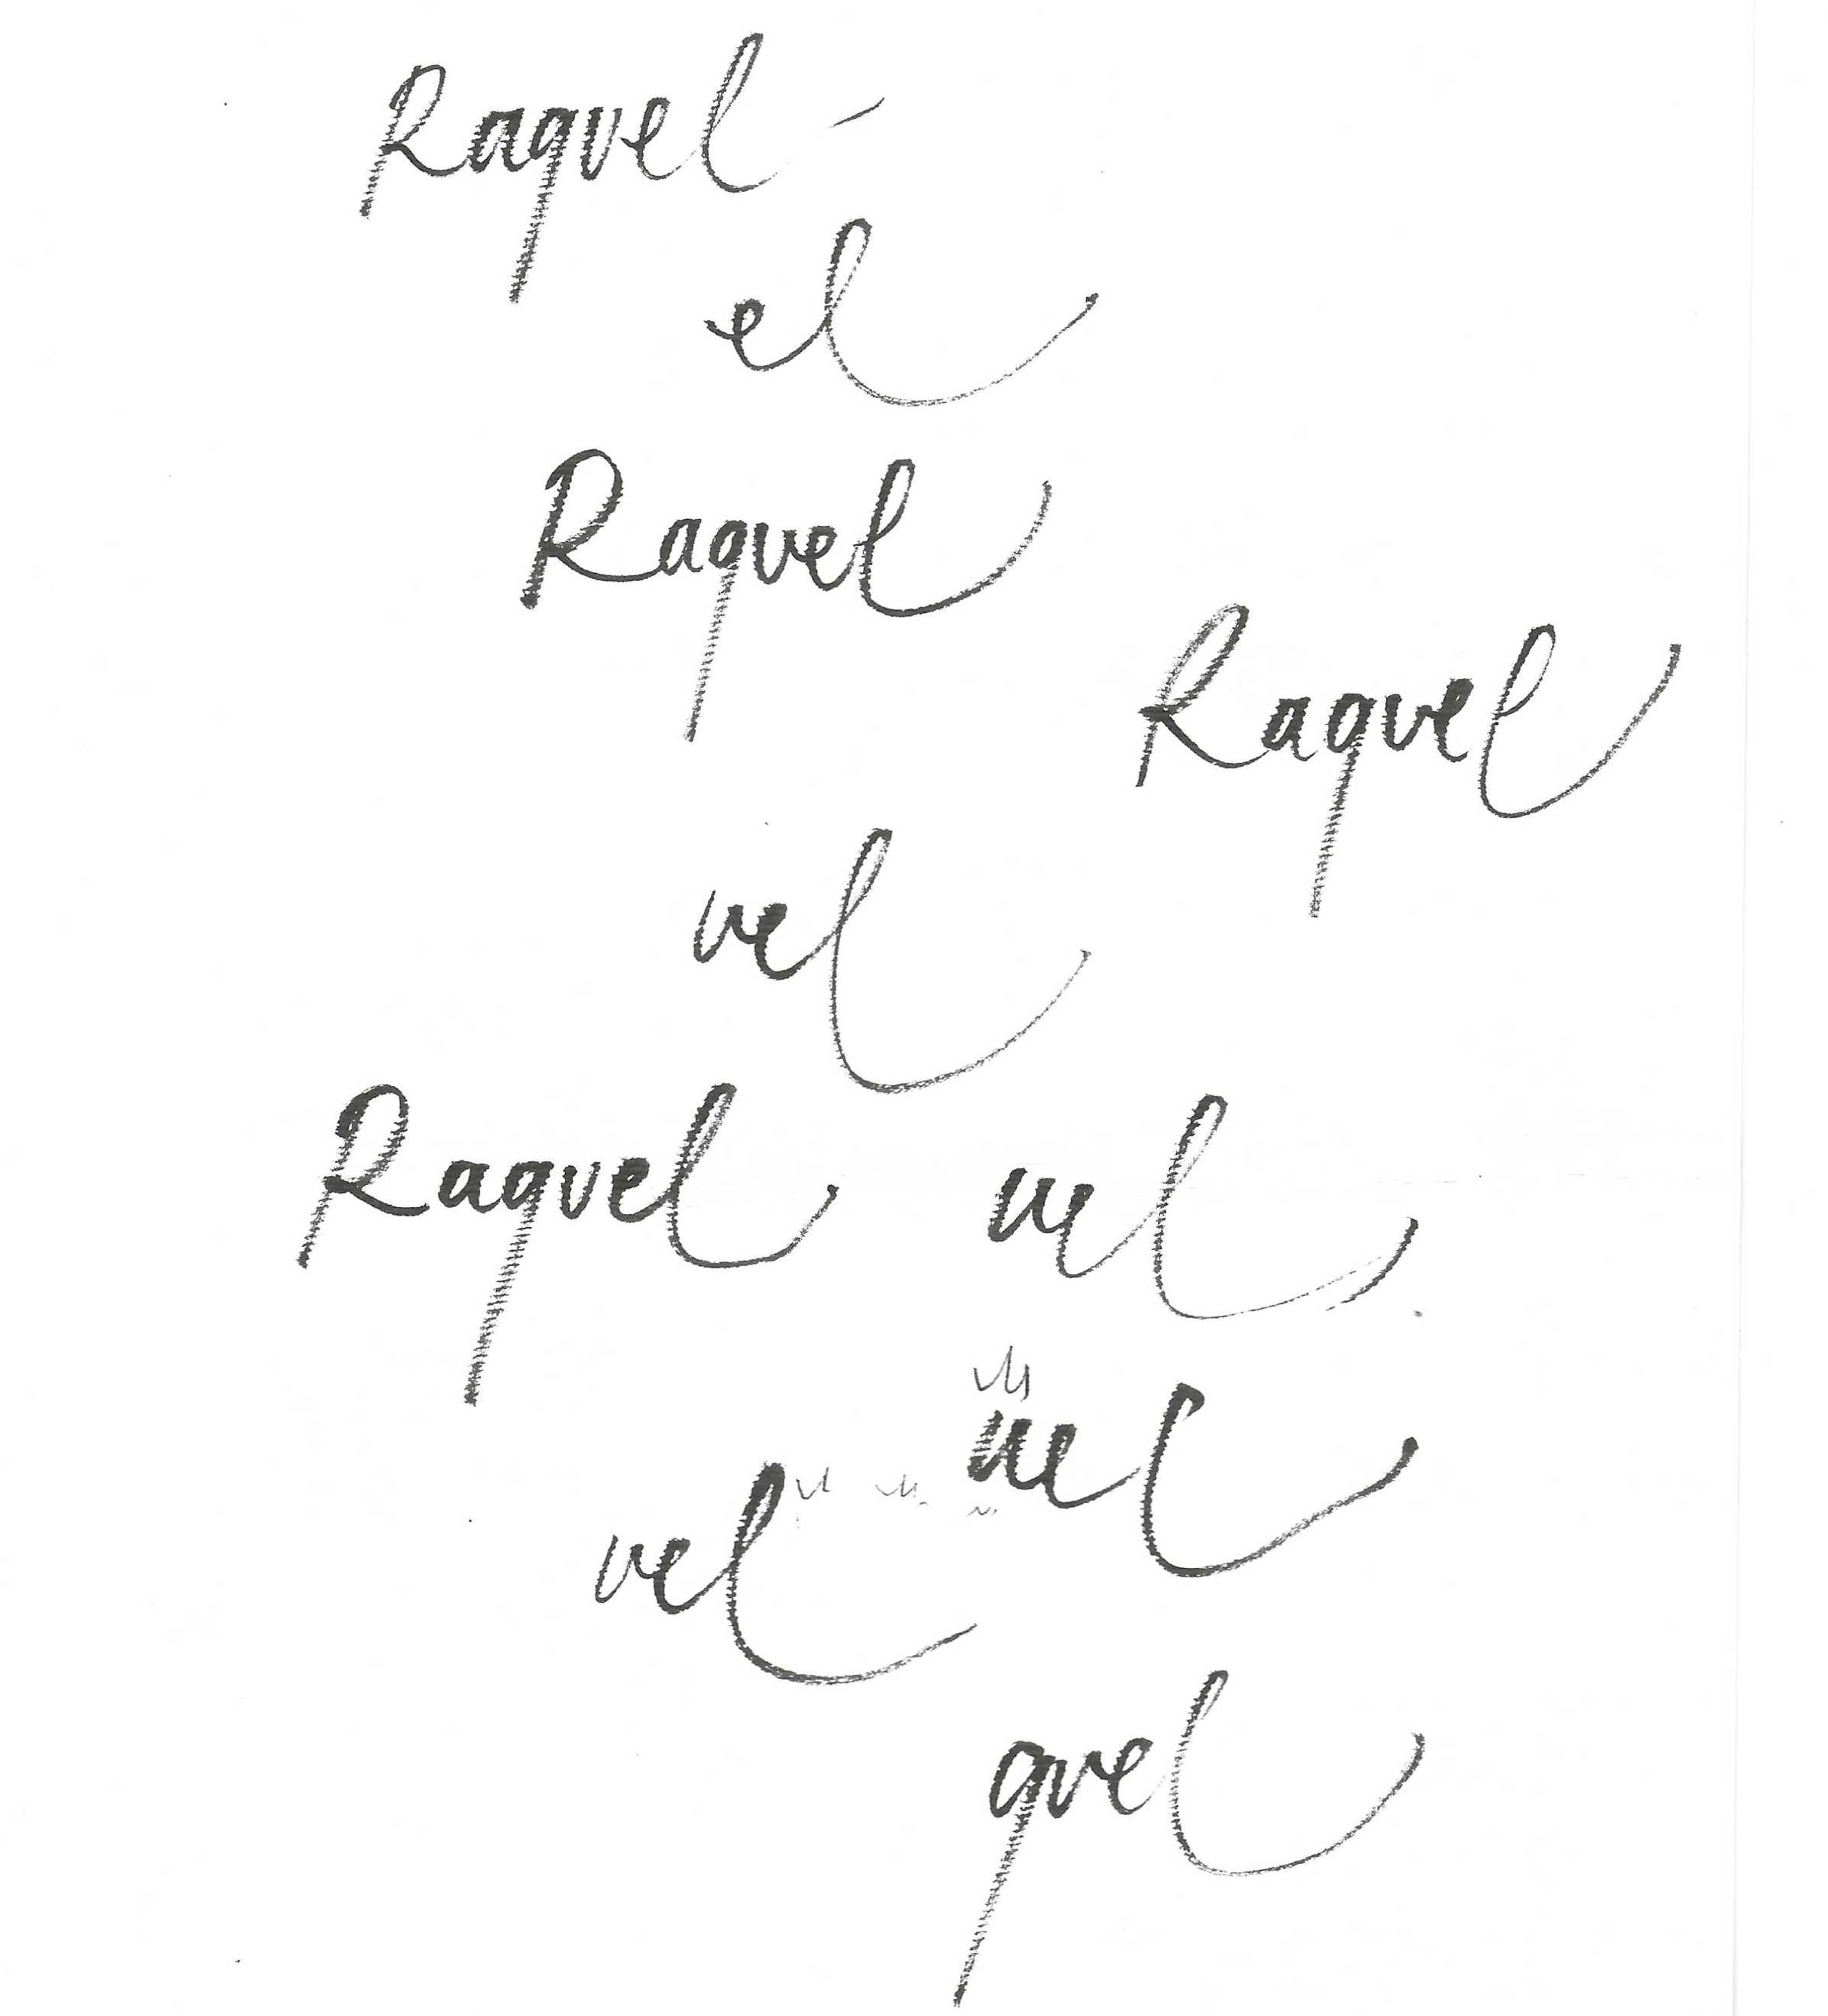 Raquel
el
Raquel
Raquel
uel
Raquel uel
uel
uel
quel